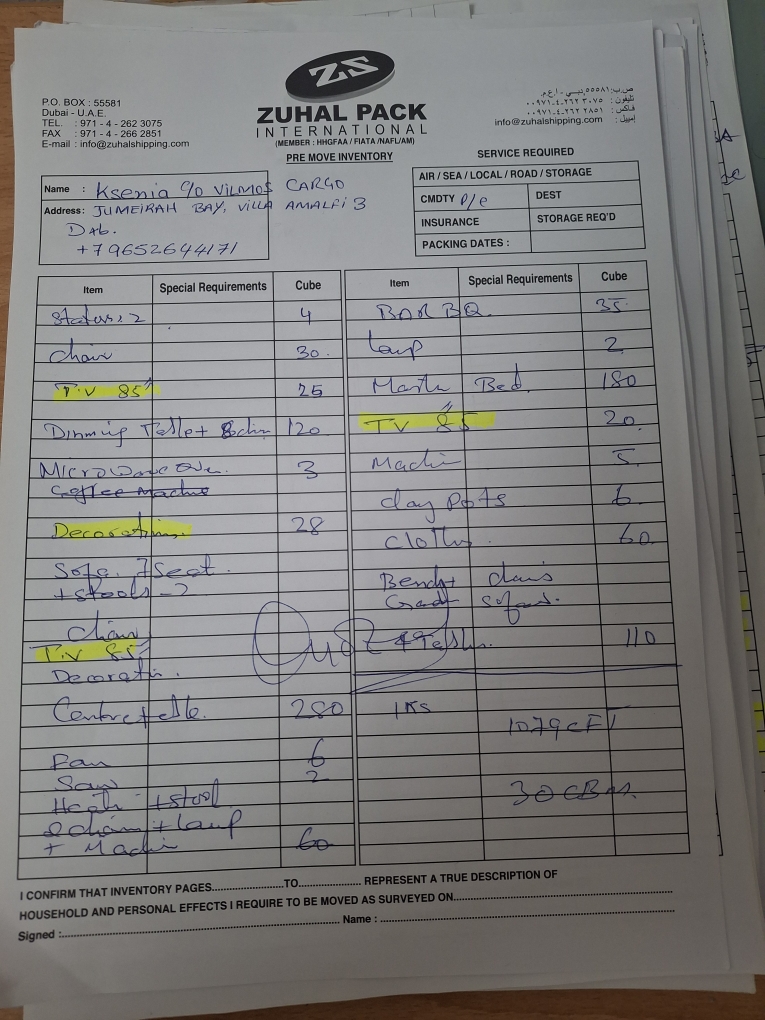 ZS
ZUHAL PACK
INTERNATIONAL
(MEMBER : HHGFAA / FIATA /NAFL/AM)
P.O. BOX : 55581
Dubai - U.A.E.
TEL. : 971 - 4 - 262 3075
FAX : 971 - 4 - 266 2851
E-mail : info@zuhalshipping.com
ص.ب: ٥٥٥٨١ دبي - إ.ع.م.
تليفون : ٠٠٩٧١-٤-٢٦٢ ٣٠٧٥
فاكس :
إيميل : info@zuhalshipping.com
PRE MOVE INVENTORY
SERVICE REQUIRED
Name : Ksenia c/o VILMOS CARGO
Address: JUMEIRAH BAY, VILLA AMALFI 3
Dxb.
+79652644171
AIR / SEA / LOCAL / ROAD / STORAGE
CMDTY P/e DEST
INSURANCE STORAGE REQ'D
PACKING DATES :
Item Special Requirements Cube
Statues: 2 4
Chair 30
T.V 85" 25
Dinning Table + 8 chair 120
Microwave oven. 3
Coffee Machine
Decoration. 28
Sofa. 7 Seat.
+ stools - 2
Chair
T.V 85"
Decoratin.
Centre table. 280
Fan 6
2
+ stool
2 chair + Lamp
+ Machi 60
Item Special Requirements Cube
BAR BQ. 35
Lamp 2
Master Bed. 180
TV 85" 20
Machi 5
clay pots 6
Clothes. 60
Bench + chairs
110
1079 CFT
30 CBM.
I CONFIRM THAT INVENTORY PAGES....................TO.................. REPRESENT A TRUE DESCRIPTION OF
HOUSEHOLD AND PERSONAL EFFECTS I REQUIRE TO BE MOVED AS SURVEYED ON....................
Signed :.................... Name :....................